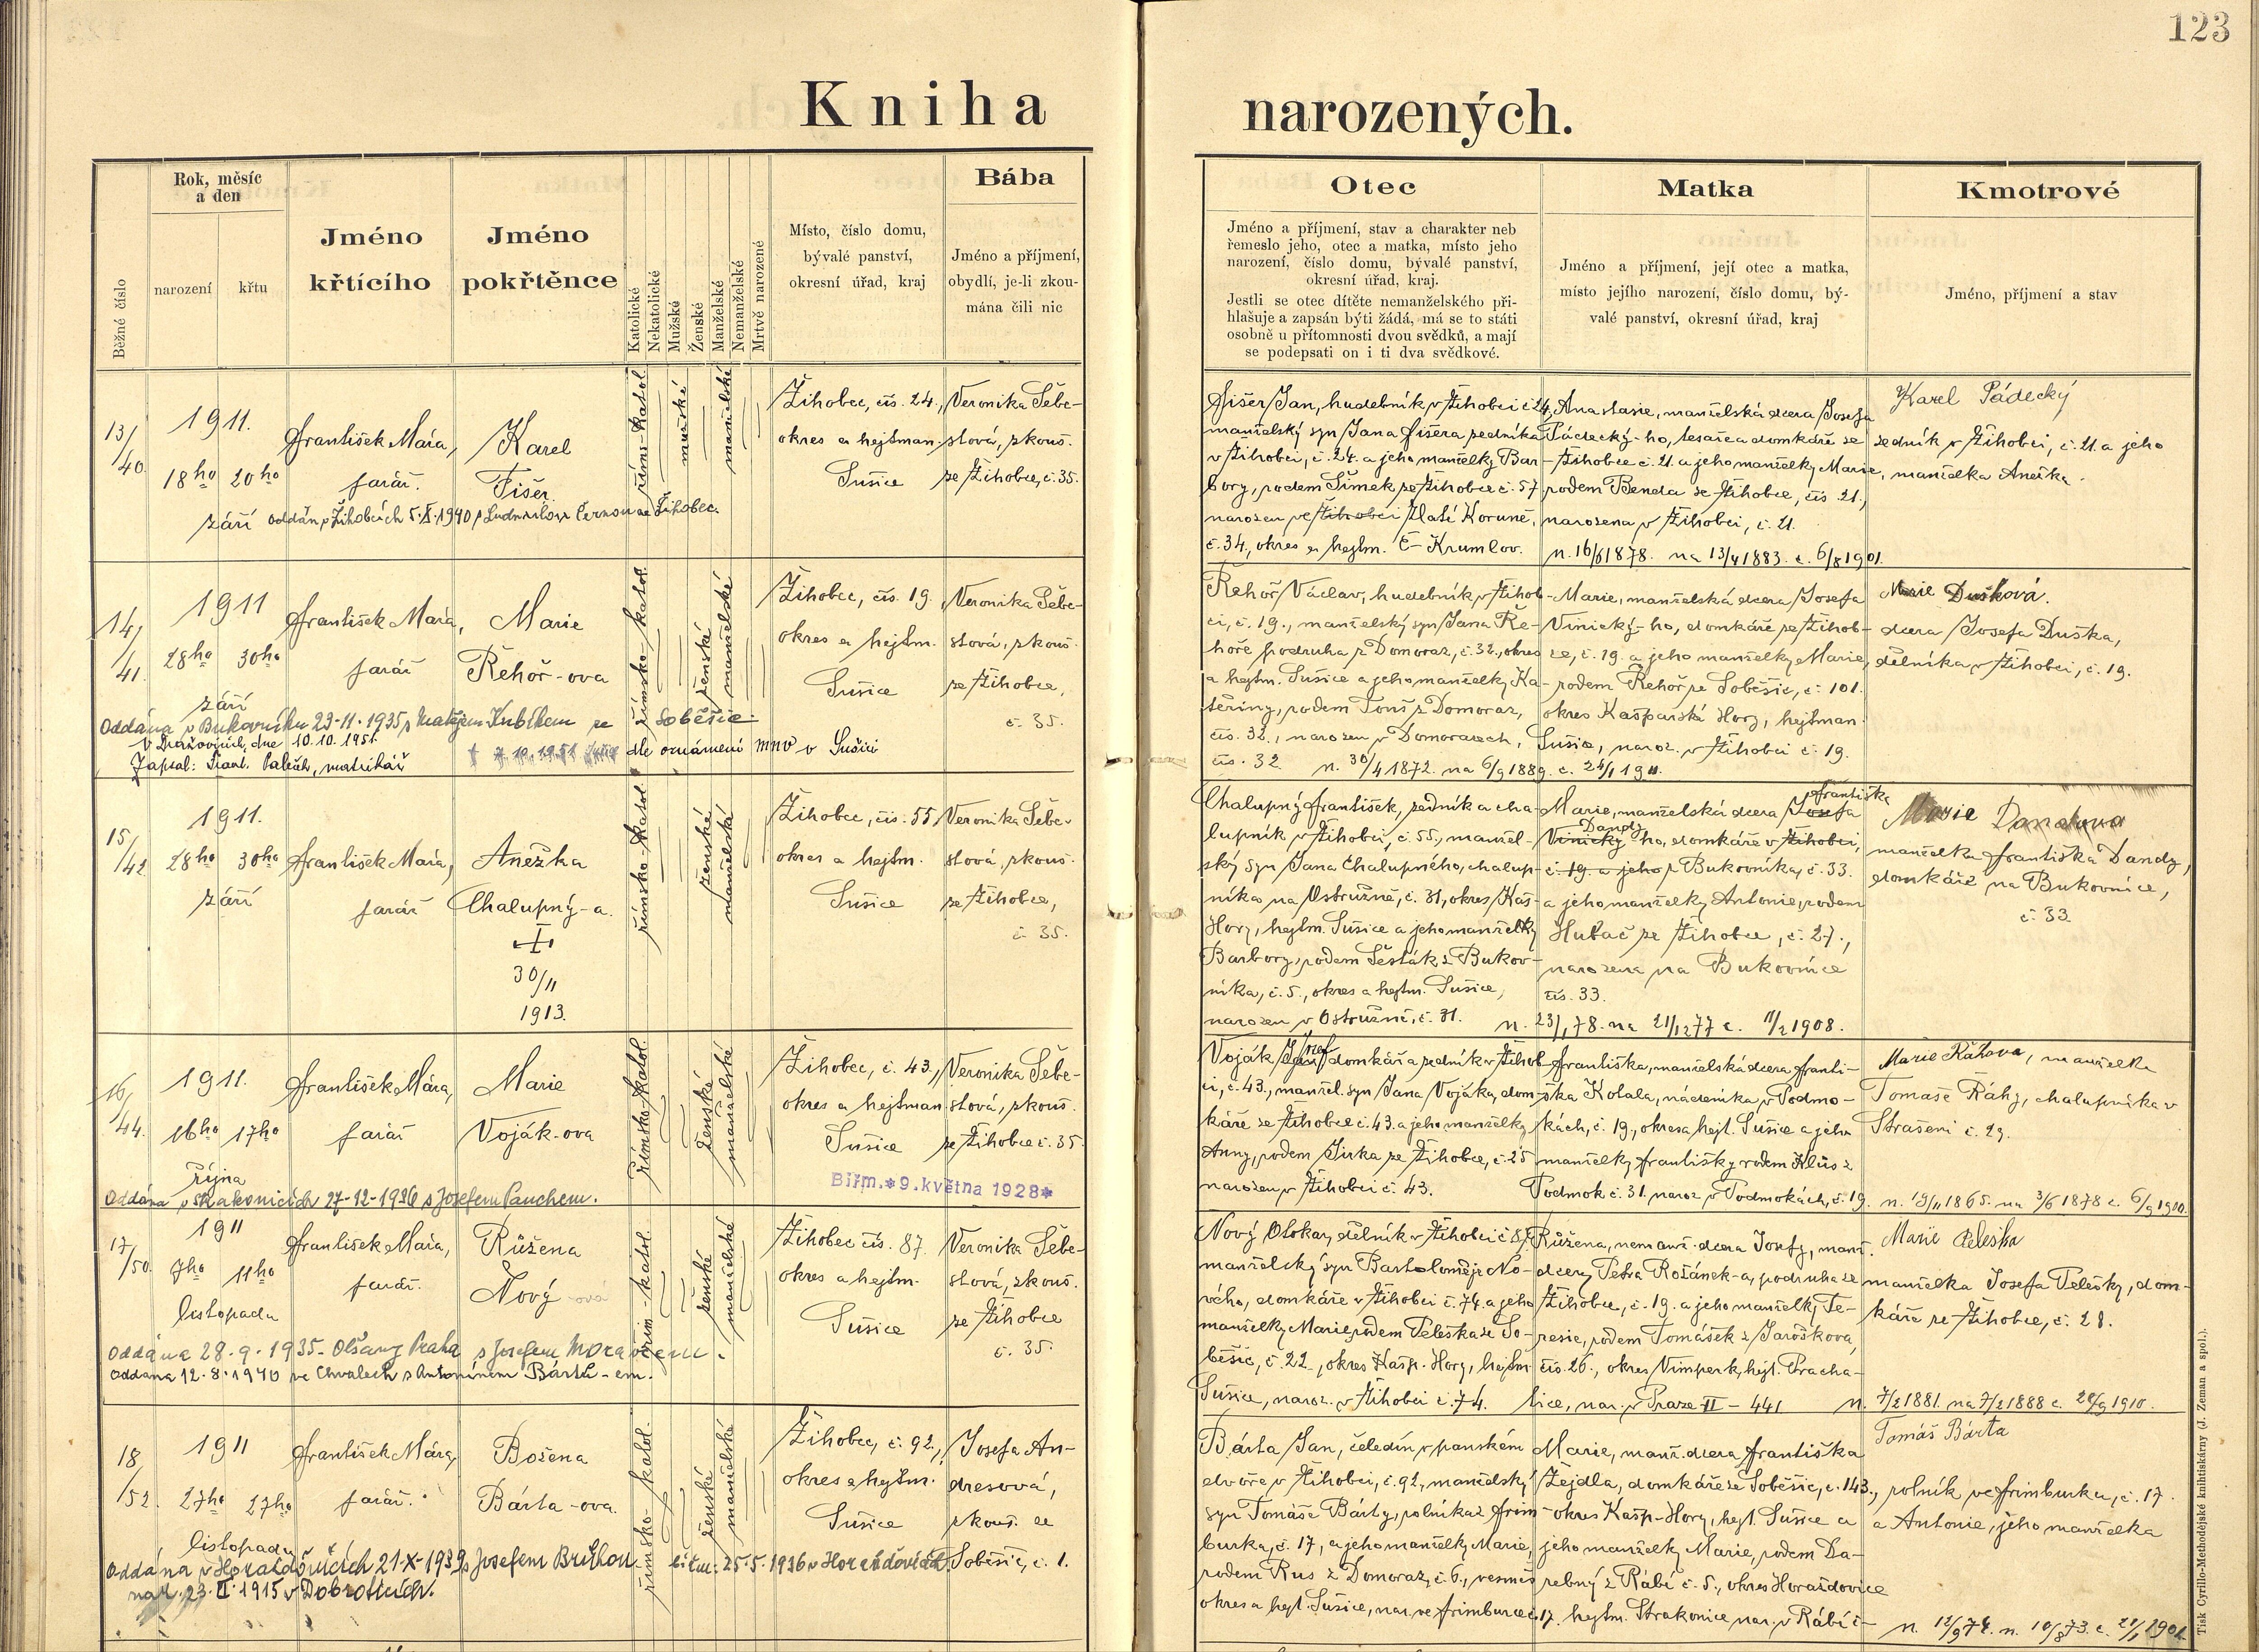 123
Kniha narozených.
Běžné číslo
Rok, měsíc
a den
narození
křtu
Jméno
křtícího
Jméno
pokřtěnce
Katolické
Nekatolické
Mužské
Ženské
Manželské
Nemanželské
Mrtvě narozené
Místo, číslo domu,
bývalé panství,
okresní úřad, kraj
Bába
Jméno a příjmení,
obydlí, je-li zkou-
mána čili nic
Otec
Jméno a příjmení, stav a charakter neb
řemeslo jeho, otec a matka, místo jeho
narození, číslo domu, bývalé panství,
okresní úřad, kraj.
Jestli se otec dítěte nemanželského při-
hlašuje a zapsán býti žádá, má se to státi
osobně u přítomnosti dvou svědků, a mají
se podepsati on i ti dva svědkové.
Matka
Jméno a příjmení, její otec a matka,
místo jejího narození, číslo domu, bý-
valé panství, okresní úřad, kraj
Kmotrové
Jméno, příjmení a stav
13/
40.
1911.
18ho 20ho
září
František Mára,
farář.
Karel
Fišer.
říms-katol.
mužské
manželské
Žihobec, čís. 24.,
okres a hejtman.
Sušice
Veronika Šebe-
stová, zkouš.
ze Žihobce, č. 35.
Fišer Jan, hudebník v Žihobci č 24,
manželský syn Jana Fišera zedníka
v Žihobci, č. 24. a jeho manželky Bar-
bory, rodem Šimek ze Žihobce č. 57
narozen ve Žihobci Zlaté Koruně,
č. 34., okres a hejtm. Č- Krumlov.
Anastasie, manželská dcera Josefa
Pádecký-ho, tesaře a domkáře ze
Žihobce č. 21. a jeho manželky Marie,
rodem Benda ze Žihobce, čís. 21.,
narozena v Žihobci, č. 21.
n. 16/6 1878. na 13/4 1883. c. 6/8 1901.
Karel Pádecký
zedník v Žihobci, č. 21. a jeho
manželka Anežka.
14/
41.
1911
28ho 30ho
září
František Mára,
farář
Marie
Řehoř-ova
Oddána v Bukovníku 23-11-1935 s Matějem Kubíkem ze Soběšic.
V Dražovicích, dne 10.10.1951.
Zapsal: Frant. Paleček, matrikář
dle oznámení MNV v Sušici
římsko-katol.
ženské
manželské
Žihobec, čís. 19.,
okres a hejtm.
Sušice
Veronika Šebe-
stová, zkouš.
ze Žihobce,
č. 35.
Řehoř Václav, hudebník v Žihob-
ci, č. 19., manželský syn Jana Ře-
hoře podruha z Domoraz, č. 32., okres
a hejtm. Sušice a jeho manželky Ka-
teřiny, rodem Touš z Domoraz,
čís. 32., narozen v Domorazech,
čís. 32.
Marie, manželská dcera Josefa
Vinický-ho, domkáře ze Žihob-
ce, č. 19. a jeho manželky Marie,
rodem Řehoř ze Soběšic, č. 101.
okres Kašparské Hory, hejtman.
Sušice, naroz. v Žihobci č. 19.
n. 30/4 1872. na 6/9 1889. c. 24/1 1911.
Marie Dušková.
dcera Josefa Duška,
dělníka v Žihobci, č. 19.
15/
42
1911.
28ho 30ho
září
František Mára,
farář
Anežka
Chalupný-a.
30/11
1913.
římsko-katol.
ženské
manželské
Žihobec, čís. 55,
okres a hejtm.
Sušice
Veronika Šebe-
stová, zkouš.
ze Žihobce,
č. 35.
Chalupný František, zedník a cha-
lupník v Žihobci, č. 55., manžel-
ský syn Jana Chalupného, chalup-
níka na Ostružně, č. 31, okres Kaš-
Hory, hejtm. Sušice a jeho manželky
Barbory, rodem Šesták z Bukov-
níka, č. 5., okres a hejtm. Sušice,
narozen v Ostružně, č. 31.
Marie, manželská dcera Josefa Františka
Vinický Dandy ho, domkáře v Žihobci,
č. 19. a jeho z Bukovníka, č. 33.
a jeho manželky Antonie, rodem
Hubač ze Žihobce, č. 27.,
narozena na Bukovnice
čís. 33.
n. 23/1 78. na 21/12 77 c. 11/2 1908.
Marie Dandova
manželka Františka Dandy,
domkáře na Bukovnice,
č. 33
16/
44.
1911.
16ho 17ho
října
František Mára,
farář
Marie
Voják-ova
Oddána v Strakonicích 27-12-1936 s Josefem Pauchem.
římsko-katol.
ženské
manželské
Žihobec, č. 43.,
okres a hejtman
Sušice
Biřm. * 9. května 1928 *
Veronika Šebe-
stová, zkouš.
ze Žihobce č. 35.
Voják Josef domkář a zedník v Žihob-
ci, č. 43., manžel. syn Jana Vojáka, dom-
káře ze Žihobce č. 43. a jeho manželky
Anny, rodem Jirka ze Žihobce, č. 25
narozen v Žihobci č. 43.
Františka, manželská dcera Franti-
ška Kotala, nádeníka v Podmo-
kách, č. 19., okres a hejt. Sušice a jeho
manželky Františky rodem Klůs z
Podmok č. 31. naroz. v Podmokách, č. 19.
Marie Ráhova, manželka
Tomáše Ráhy, chalupníka v
Strašeni č. 29.
n. 19/11 1865. na 3/6 1878 c. 6/9 1910.
17/
50.
1911
7ho 11ho
listopadu
František Mára,
farář.
Růžena
Nový-ová
Oddána 28.9.1935- Olšany Praha s Josefem Moravcem.
Oddána 12.8.1940 ve Chvalech s Antonínem Bárth-em.
řím-katol.
ženské
manželské
Žihobec čís. 87.
okres a hejtm.
Sušice
Veronika Šebe-
stová, zkouš.
ze Žihobce
č. 35.
Nový Otokar, dělník v Žihobci č 87.
manželský syn Bartoloměje No-
vého, domkáře v Žihobci č. 74. a jeho
manželky Marie, rodem Peleška ze So-
běšic, č. 22., okres Kašp. Hory, hejtm.
Sušice, naroz. v Žihobci č. 74.
Růžena, nemanž. dcera Josefy, manž.
dcery Petra Rožánek-a, podruha ze
Žihobce, č. 19. a jeho manželky Te-
resie, rodem Tomášek z Jaroškova,
čís. 26., okres Vimperk, hejt. Pracha-
tice, nar. v Praze II - 441.
Marie Peleška
manželka Josefa Pelešky, dom-
káře ze Žihobce, č. 28.
n. 7/2 1881. na 7/2 1888 c. 20/9 1910.
18
/52.
1911
27ho 27ho
listopadu
František Mára,
farář.
Božena
Bárta-ova.
Oddána v Horažďovicích 21-X-1939 s Josefem Břichou
nar. 23.II.1915 v Dobroticích.
25.5.1936 v Horažďovicích.
římsko-katol.
ženské
manželské
Žihobec, č. 92.,
okres a hejtm.
Sušice
Josefa An-
dresová,
zkouš. ze
Soběšic, č. 1.
Bárta Jan, čeledín v panském
dvoře v Žihobci, č. 92, manželský
syn Tomáše Bárty, rolníka z Frim-
burka, č. 17, a jeho manželky Marie,
rodem Rus z Domoraz, č. 6., vesměs
okres a hejt. Sušice, nar. ve Frimburce č. 17.
Marie, manž. dcera Františka
Zejdla, domkáře ze Soběšic, č. 143.,
okres Kašp-Hory, hejt. Sušice a
jeho manželky Marie, rodem
z Rábí č. 5., okres Horažďovice
hejtm. Strakonice nar. v Rábí č-
Tomáš Bárta
rolník ve Frimburku, č. 17.
a Antonie, jeho manželka
n. 12/9 74. n. 10/8 73. c.
Tisk Cyrillo-Methodějské knihtiskárny (J. Zeman a spol.).